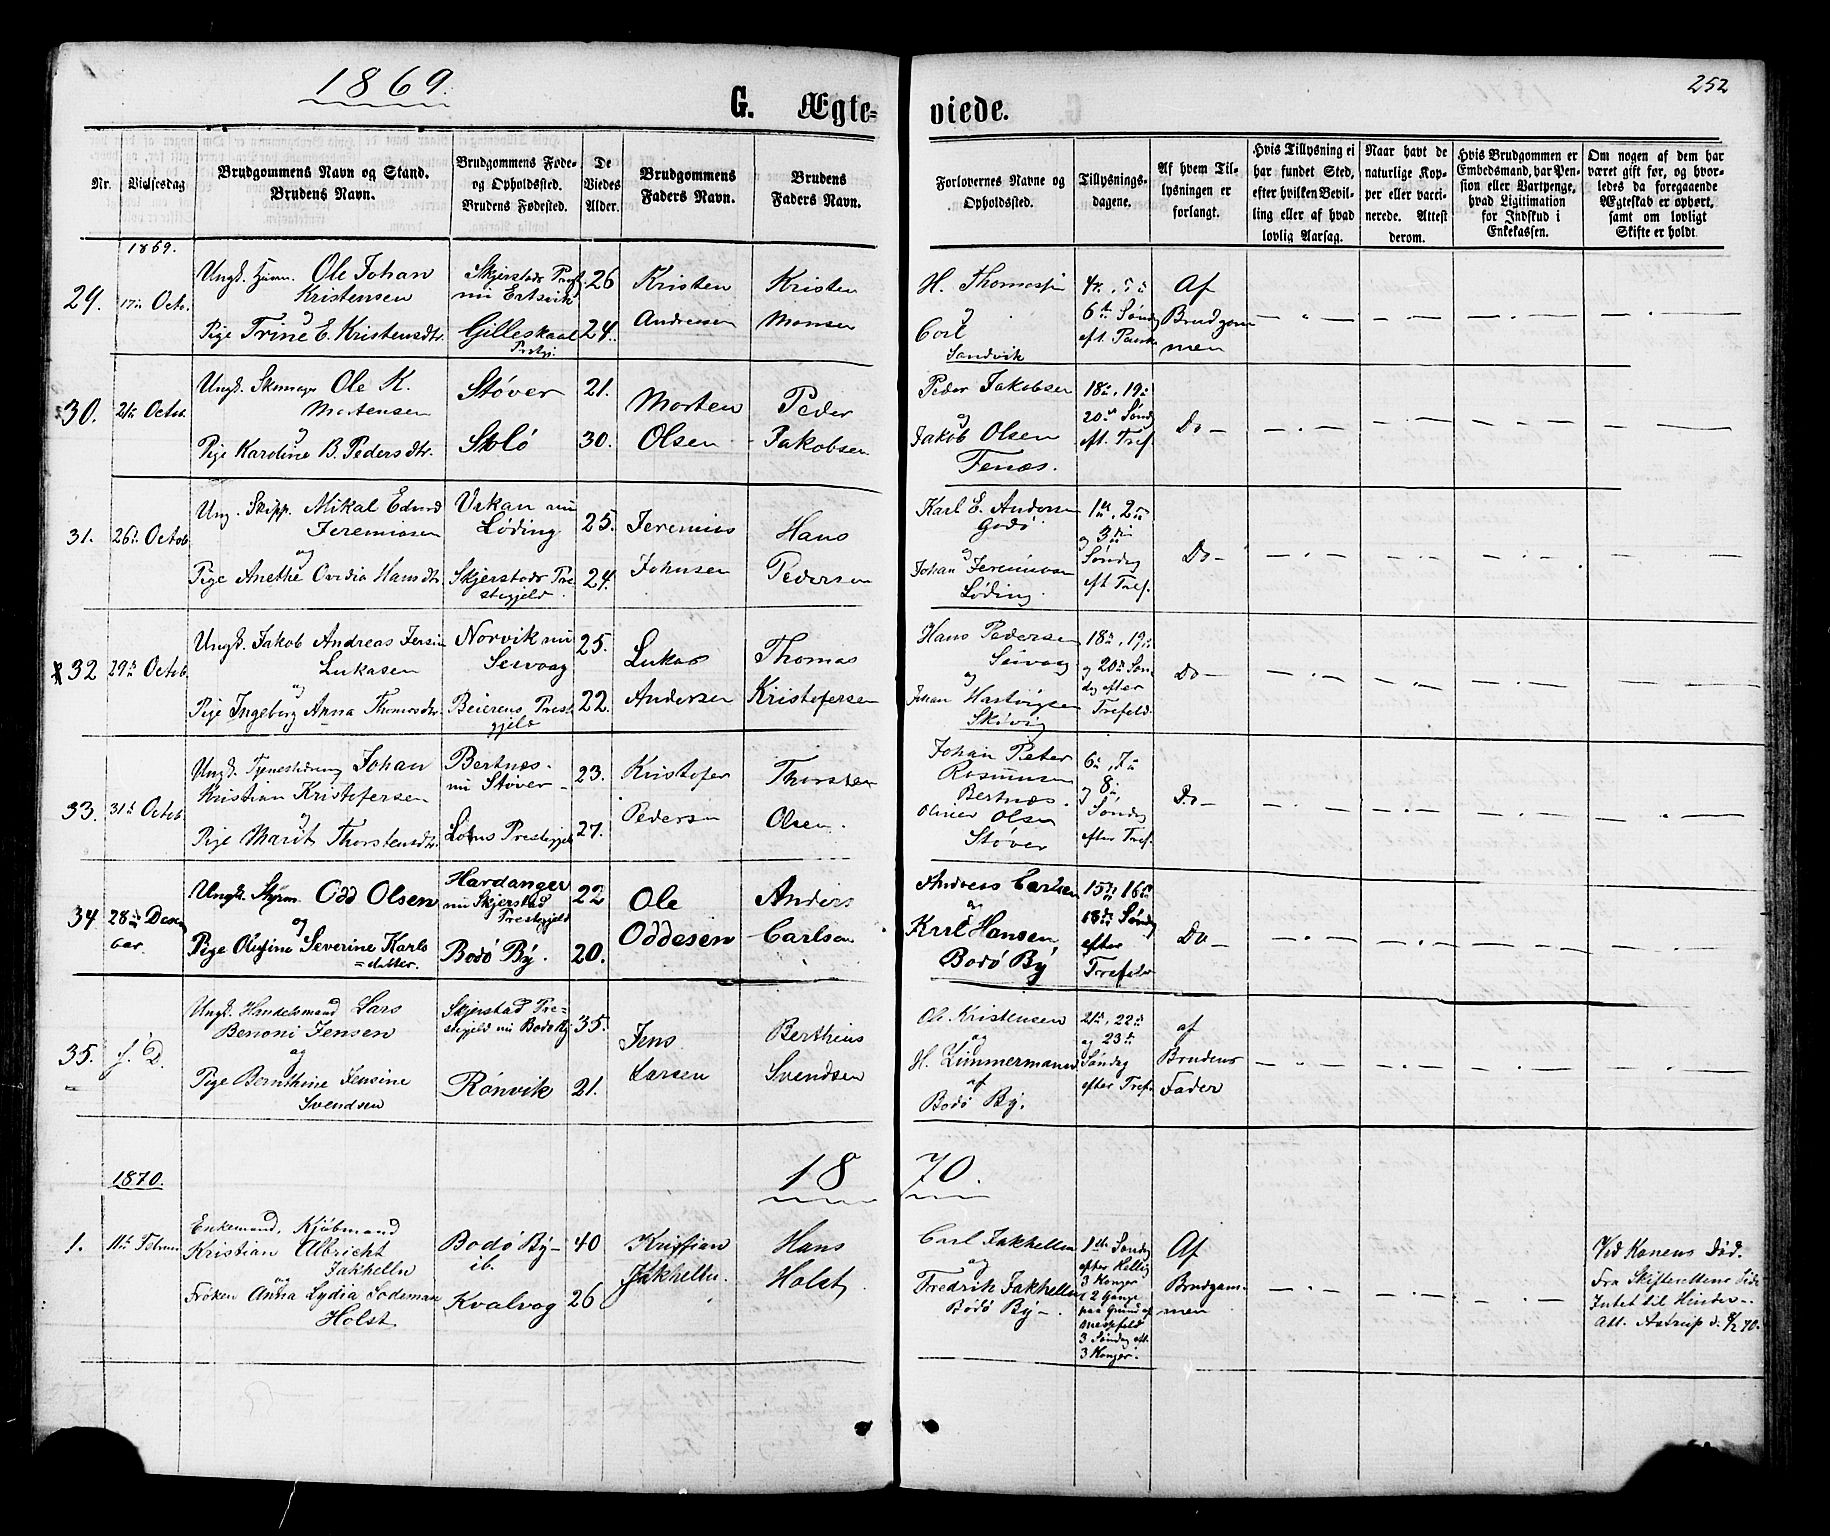 1869.
252
G. Ægteviede.
Nr.
Vielsesdag
Brudgommens Navn og Stand.
Brudens Navn.
Brudgommens Føde-
og Opholdssted.
Brudens Fødested.
De
Viedes
Alder.
Brudgommens
Faders Navn.
Brudens
Faders Navn.
Forlovernes Navne og
Opholdssted.
Tillysnings-
dagene.
Af hvem Til-
lysningen er
forlangt.
Hvis Tillysning ei
har fundet Sted,
efter hvilken Bevil-
ling eller af hvad
lovlig Aarsag.
Naar havt de
naturlige Kop-
per eller vacci-
nerede. Attest
derom.
Hvis Brudgommen er
Embedsmand, har Pen-
sion eller Vartpenge,
hvad Legitimation
for Indskud i
Enkekassen.
Om nogen af dem har
været gift før, og hvor-
ledes da foregaaende
Ægteskab er ophørt,
samt om lovligt
Skifte er holdt.
1869.
29. 17de Octr.
Ungk. Ole Johan
Kristensen
og
Pige Trine E. Kristensdtr.
Skjerstads
nu Ertsvik
Gilleskaal
Prstgj.
26
24.
Kristen
Andreasen
Kristen
Monsen
H. Thomasen
og
Carl
Sandvik
4de, 5te
6te Søndg
eft. Paask.
Af
Brudgom
men
30. 21de Octbr.
Ungk. Ole K.
Mortensen
og
Pige Karoline B. Pedersdtr.
Støver
Stolö
21.
30.
Morten
Olsen
Peder
Jakobsen
Peder Jakobsen
og
Jakob Olsen
Fenæs.
18de, 19de
20de Søndg
eft. Tref.
Do
31. 26de Octob
Ung. Skipp. Mikal Edvard
Jeremiasen
og
Pige Anethe Ovidia Hansdtr.
Vikan nu
Løding
Skjerstads Pre
stegjeld.
25.
24.
Jeremias
Johnsen
Hans
Pedersen
Karl E. Andersen
Godö
og
Johan Jeremiasen
Løding.
1ste, 2den
og 3die
Søndag
eft Tref.
Do
32 29de Octob.
Ungk. Jakob Andreas
Lukasen
og
Pige Ingeborg Anna Thomasdtr.
Norvik nu
Seivaag
Beierens Prest
gjeld
25.
22.
Lukas
Andersen
Thomas
Kristofersen
Hans Pedersen
Seivaag
og
Johan Hartvigsen
18de, 19de
og 20de Søn
dg efter
Trefold.
Do
33. 31te Octob.
Ungk. Johan
Kristian Kristofersen
og
Pige Marit Thorstensdtr.
Bertnæs.
nu Støver
Loms Prestegjeld
23.
27.
Kristofer
Pedersen
Thorsten
Olsen.
Johan Peter
Rasmusen
Bertnæs.
Oliver Olsen
Støver
6te, 7de
og 8de
Søndg
efter Tref.
Do
34 28de Decem
ber.
Ungk. Styrm. Odd Olsen
og
Pige Olufine Severine Karls
=datter.
Hardanger
nu Skjerstad
Prestegjeld
Bodö By.
22
20.
Ole
Oddesen
Anders
Carlsen
Anders Carlsen
og
Karl Hansen
Bodö By
15de 16de
18de Søndg
efter
Trefold
Do
35. s. D.
Ungk. Handelsmand Lars
Benoni Jensen
og
Pige Bernthine Jensine
Svendsen
Skjerstad Pre-
stegjeld nu Bodö By
Rönvik
35.
21.
Jens
Larsen
Berthius
Svendsen
Ole Kristensen
og
H. Zimmermann
af
Bodö By.
21de, 22de
og 23de
Søndag
efter Tref.
af
Brudens
Fader
1870.
1870.
1. 11te Februar
Enkemand, Kjöbmand
Kristian Albricht
Jakhelln
og
Frøken Anna Lydia Sodeman
Holst
Bodö By
ib.
Kvalvog
40
26
Kristian
Jakhelln.
Hans
Holst
Carl Jakhelln
og
Fredrik Jakhelln
Bodö By
1ste Søndg
efter Hellig
3 Konger
2 Gange
paa Grund af
3 Søndg eft.
3 Konger.
Af
Brudgom
men
Ved Konens Død.
Fra Skifterettens Side
Intet til Hinder.
Att. Astrup d. 8/2 70.